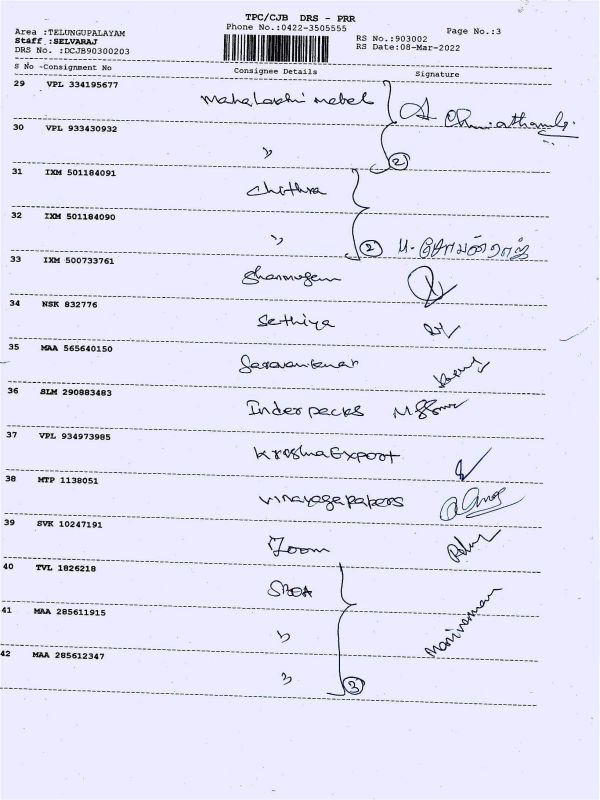 TPC/CJB DRS - PRR
Phone No.:0422-3505555
Page No.:3
Area :TELUNGUPALAYAM
Staff :SELVARAJ
DRS No. :DCJB90300203
RS No.:903002
RS Date:08-Mar-2022
S No -Consignment No Consignee Details Signature
29 VPL 334195677
30 VPL 933430932
"
2
31 IXM 501184091
Chithra
32 IXM 501184090
"
2
33 IXM 500733761
Shanmugam
34 NSK 832776
Sethiya
35 MAA 565640150
36 SLM 290883483
Inder packs
37 VPL 934973985
Krishna Export
38 MTP 1138051
Vinayaga papers
39 SVK 10247191
Zoom
40 TVL 1826218
41 MAA 285611915
"
42 MAA 285612347
"
3